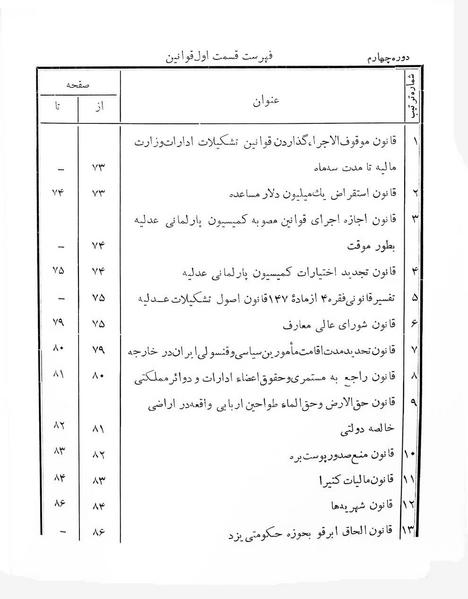 دوره چهارم
فهرست قسمت اول قوانین
شماره ترتیب
عنوان
صفحه
از
تا
۱ قانون موقوف الاجراء گذاردن قوانین تشکیلات ادارات وزارت
مالیه تا مدت سه ماه ۷۳ –
۲ قانون استقراض یك میلیون دلار مساعده ۷۳ ۷۴
۳ قانون اجازه اجرای قوانین مصوبه کمیسیون پارلمانی عدلیه
بطور موقت ۷۴ –
۴ قانون تجدید اختیارات کمیسیون پارلمانی عدلیه ۷۴ ۷۵
۵ تفسیر قانونی فقره ۴ از مادهٔ ۱۴۷ قانون اصول تشکیلات عدلیه ۷۵ –
۶ قانون شورای عالی معارف ۷۵ ۷۹
۷ قانون تحدید مدت اقامت مأمورین سیاسی و قنسولی ایران در خارجه ۷۹ ۸۰
۸ قانون راجع به مستمری و حقوق اعضاء ادارات و دوائر مملکتی ۸۰ ۸۱
۹ قانون حق الارض و حق الماء طواحین اربابی واقعه در اراضی
خالصه دولتی ۸۱ ۸۲
۱۰ قانون منع صدور پوست بره ۸۲ ۸۳
۱۱ قانون مالیات کتیرا ۸۳ ۸۴
۱۲ قانون شهریه‌ها ۸۴ ۸۶
۱۳ قانون الحاق ابرقو بحوزه حکومتی یزد ۸۶ –